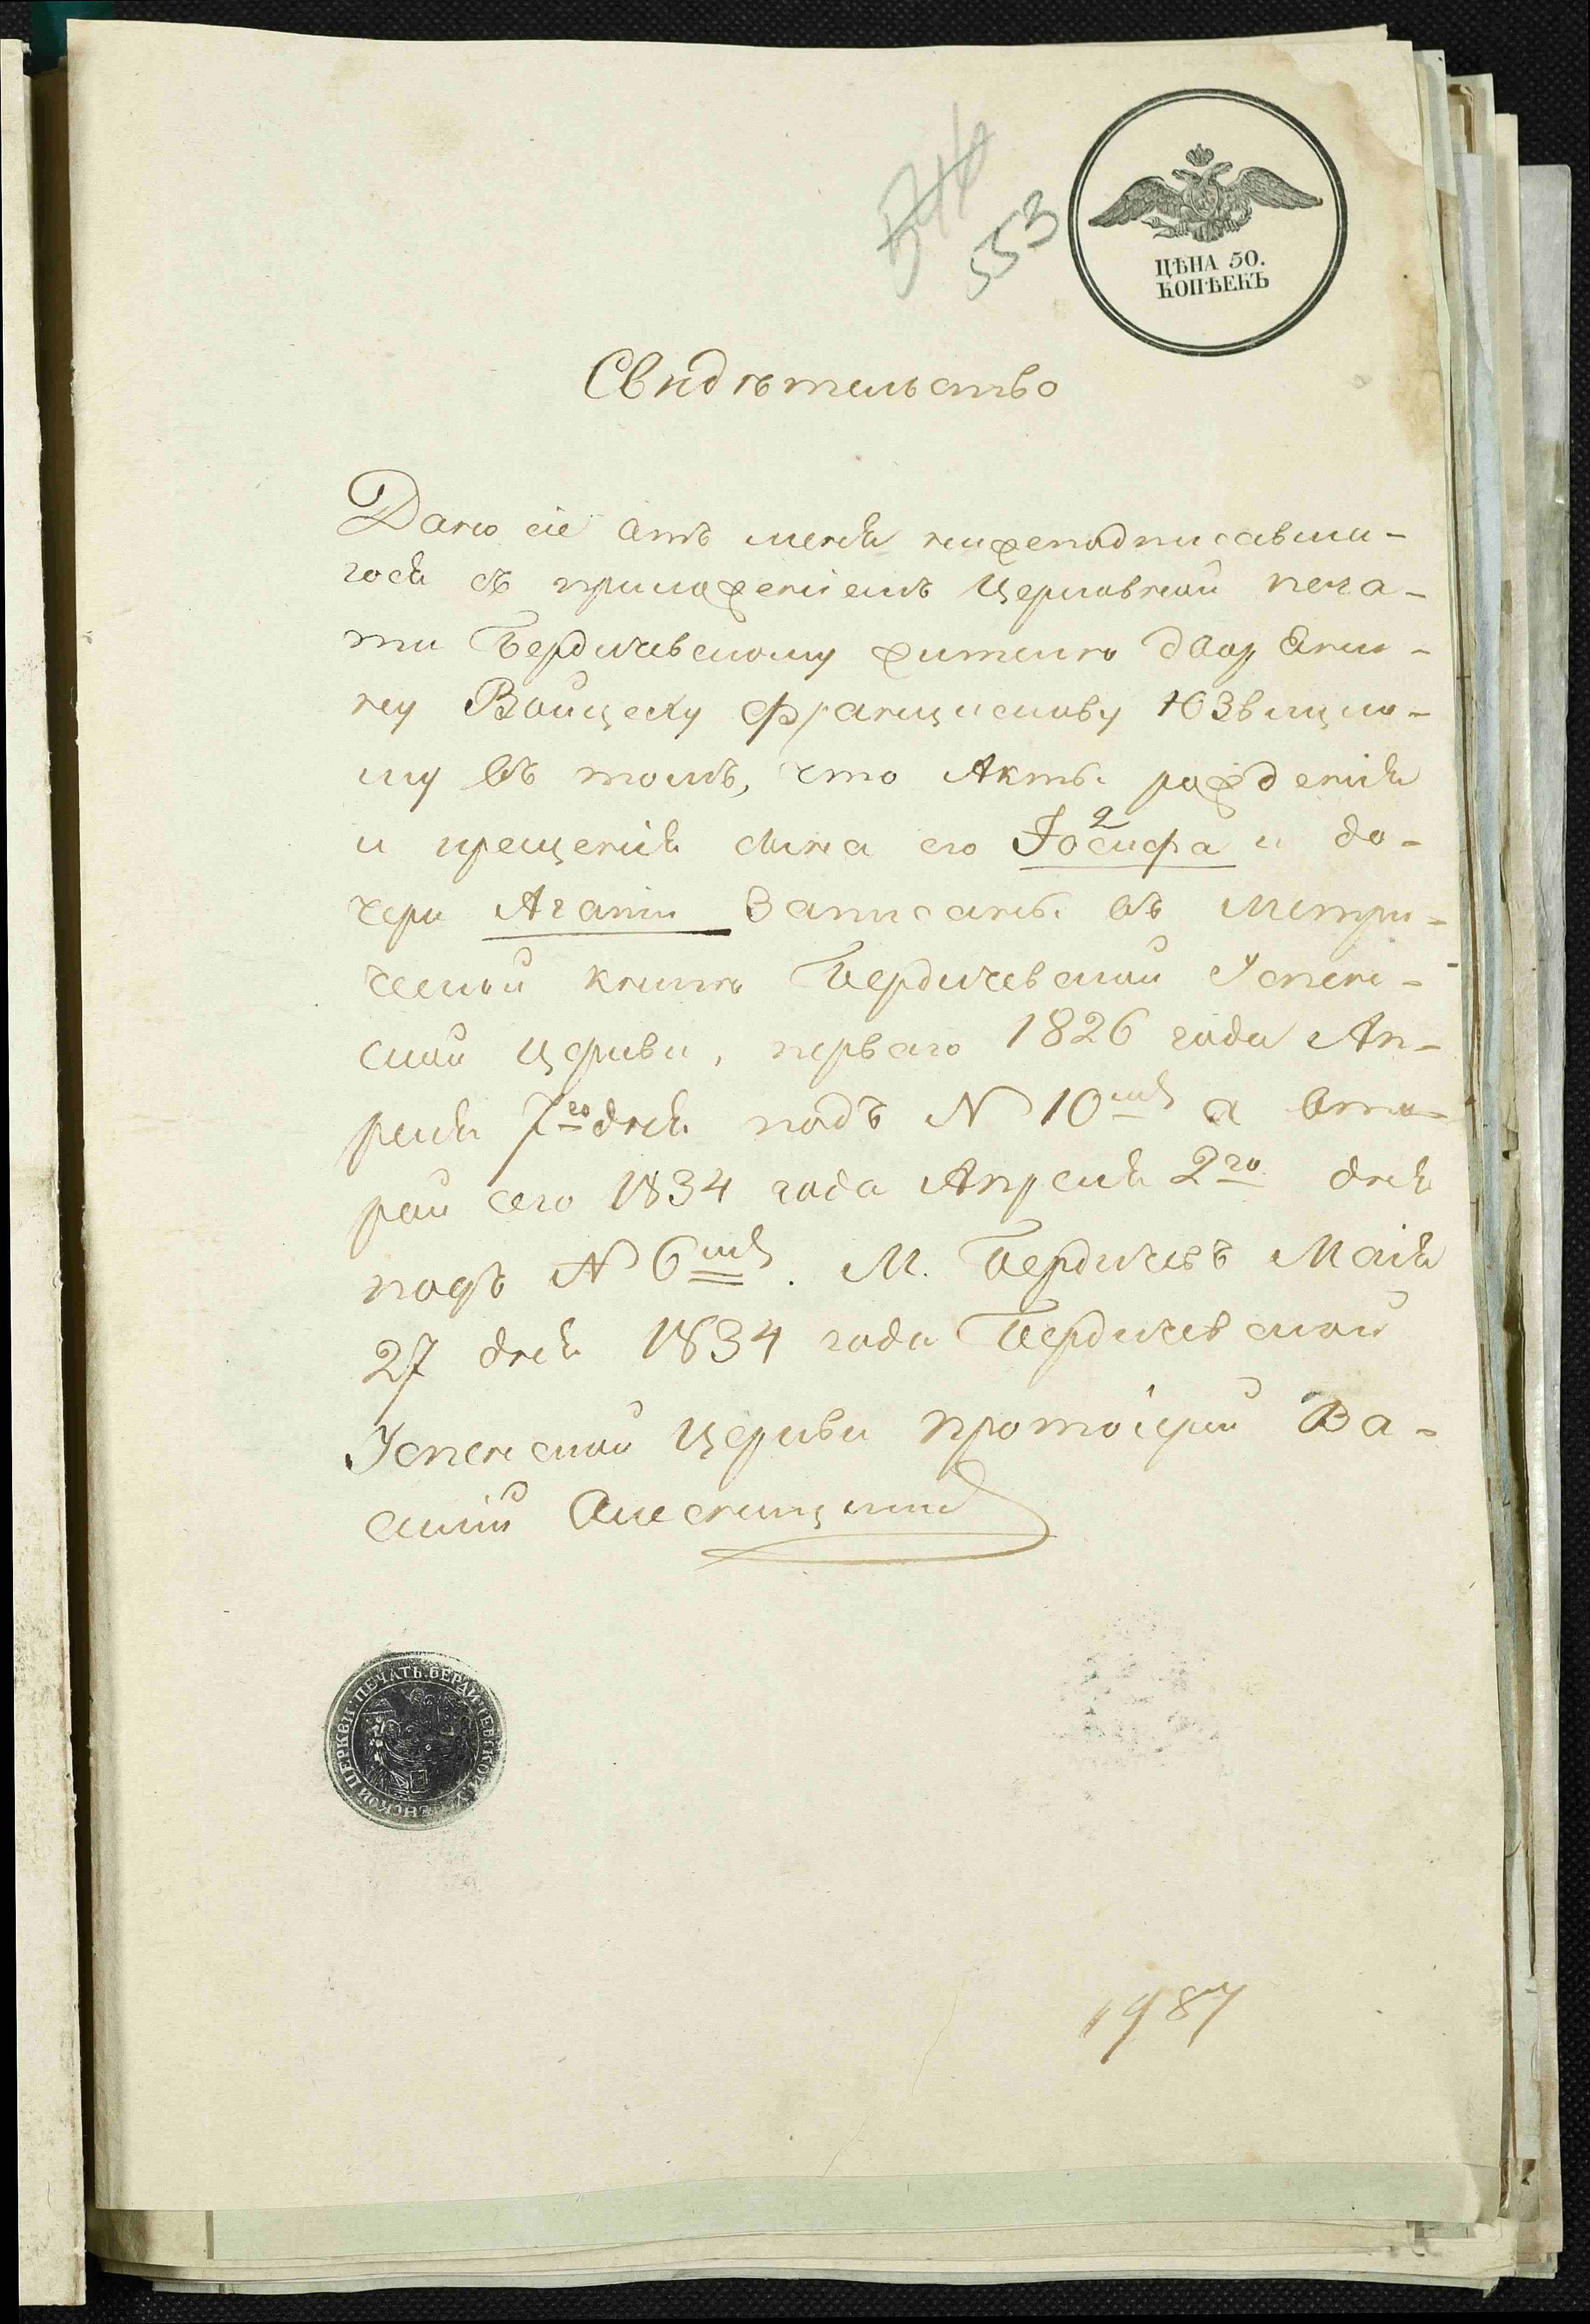 546
553
ЦѢНА 50.
КОПѢЕКЪ
Свидѣтельство
Дано сіе отъ меня нижеподписавша-
гося съ приложеніемъ Церковной печа-
ти Бердичевскому жителю дворянин-
ну Войцеху Францискову Юзвицко-
му въ томъ, что Акты рожденія
и крещенія сына его Іосифа и до-
2
чери Агапіи Записаны въ Метри-
ческой книгѣ Бердичевской Успен-
ской Церкви, перваго 1826 года Ап-
реля 7го дня подъ N 10мъ а вто-
рой сего 1834 года Апреля 2го дня
подъ N 6мъ. М. Бердичевъ Маія
27 дня 1834 года Бердичевской
Успенской Церкви протоіерей Ва-
силій
ПЕЧАТЬ БЕРДИЧЕВСКОЙ УСПЕНСКОЙ ЦЕРКВИ
1987